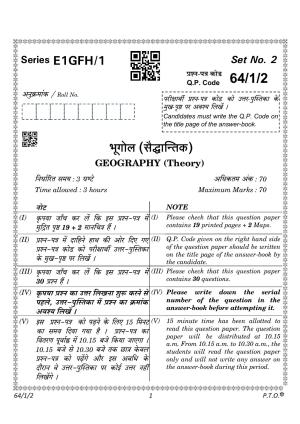 Series E1GFH/1
Set No. 2
प्रश्न-पत्र कोड
Q.P. Code 64/1/2
अनुक्रमांक / Roll No.
परीक्षार्थी प्रश्न-पत्र कोड को उत्तर-पुस्तिका के
मुख-पृष्ठ पर अवश्य लिखें ।
Candidates must write the Q.P. Code on
the title page of the answer-book.
भूगोल (सैद्धान्तिक)
GEOGRAPHY (Theory)
निर्धारित समय : 3 घण्टे
अधिकतम अंक : 70
Time allowed : 3 hours
Maximum Marks : 70
नोट
(I) कृपया जाँच कर लें कि इस प्रश्न-पत्र में
मुद्रित पृष्ठ 19 + 2 मानचित्र हैं ।
(II) प्रश्न-पत्र में दाहिने हाथ की ओर दिए गए
प्रश्न-पत्र कोड को परीक्षार्थी उत्तर-पुस्तिका
के मुख-पृष्ठ पर लिखें ।
(III) कृपया जाँच कर लें कि इस प्रश्न-पत्र में
30 प्रश्न हैं ।
(IV) कृपया प्रश्न का उत्तर लिखना शुरू करने से
पहले, उत्तर-पुस्तिका में प्रश्न का क्रमांक
अवश्य लिखें ।
(V) इस प्रश्न-पत्र को पढ़ने के लिए 15 मिनट
का समय दिया गया है । प्रश्न-पत्र का
वितरण पूर्वाह्न में 10.15 बजे किया जाएगा ।
10.15 बजे से 10.30 बजे तक छात्र केवल
प्रश्न-पत्र को पढ़ेंगे और इस अवधि के
दौरान वे उत्तर-पुस्तिका पर कोई उत्तर नहीं
लिखेंगे ।
NOTE
(I) Please check that this question paper
contains 19 printed pages + 2 Maps.
(II) Q.P. Code given on the right hand side
of the question paper should be written
on the title page of the answer-book by
the candidate.
(III) Please check that this question paper
contains 30 questions.
(IV) Please write down the serial
number of the question in the
answer-book before attempting it.
(V) 15 minute time has been allotted to
read this question paper. The question
paper will be distributed at 10.15
a.m. From 10.15 a.m. to 10.30 a.m., the
students will read the question paper
only and will not write any answer on
the answer-book during this period.
64/1/2
1
P.T.O.